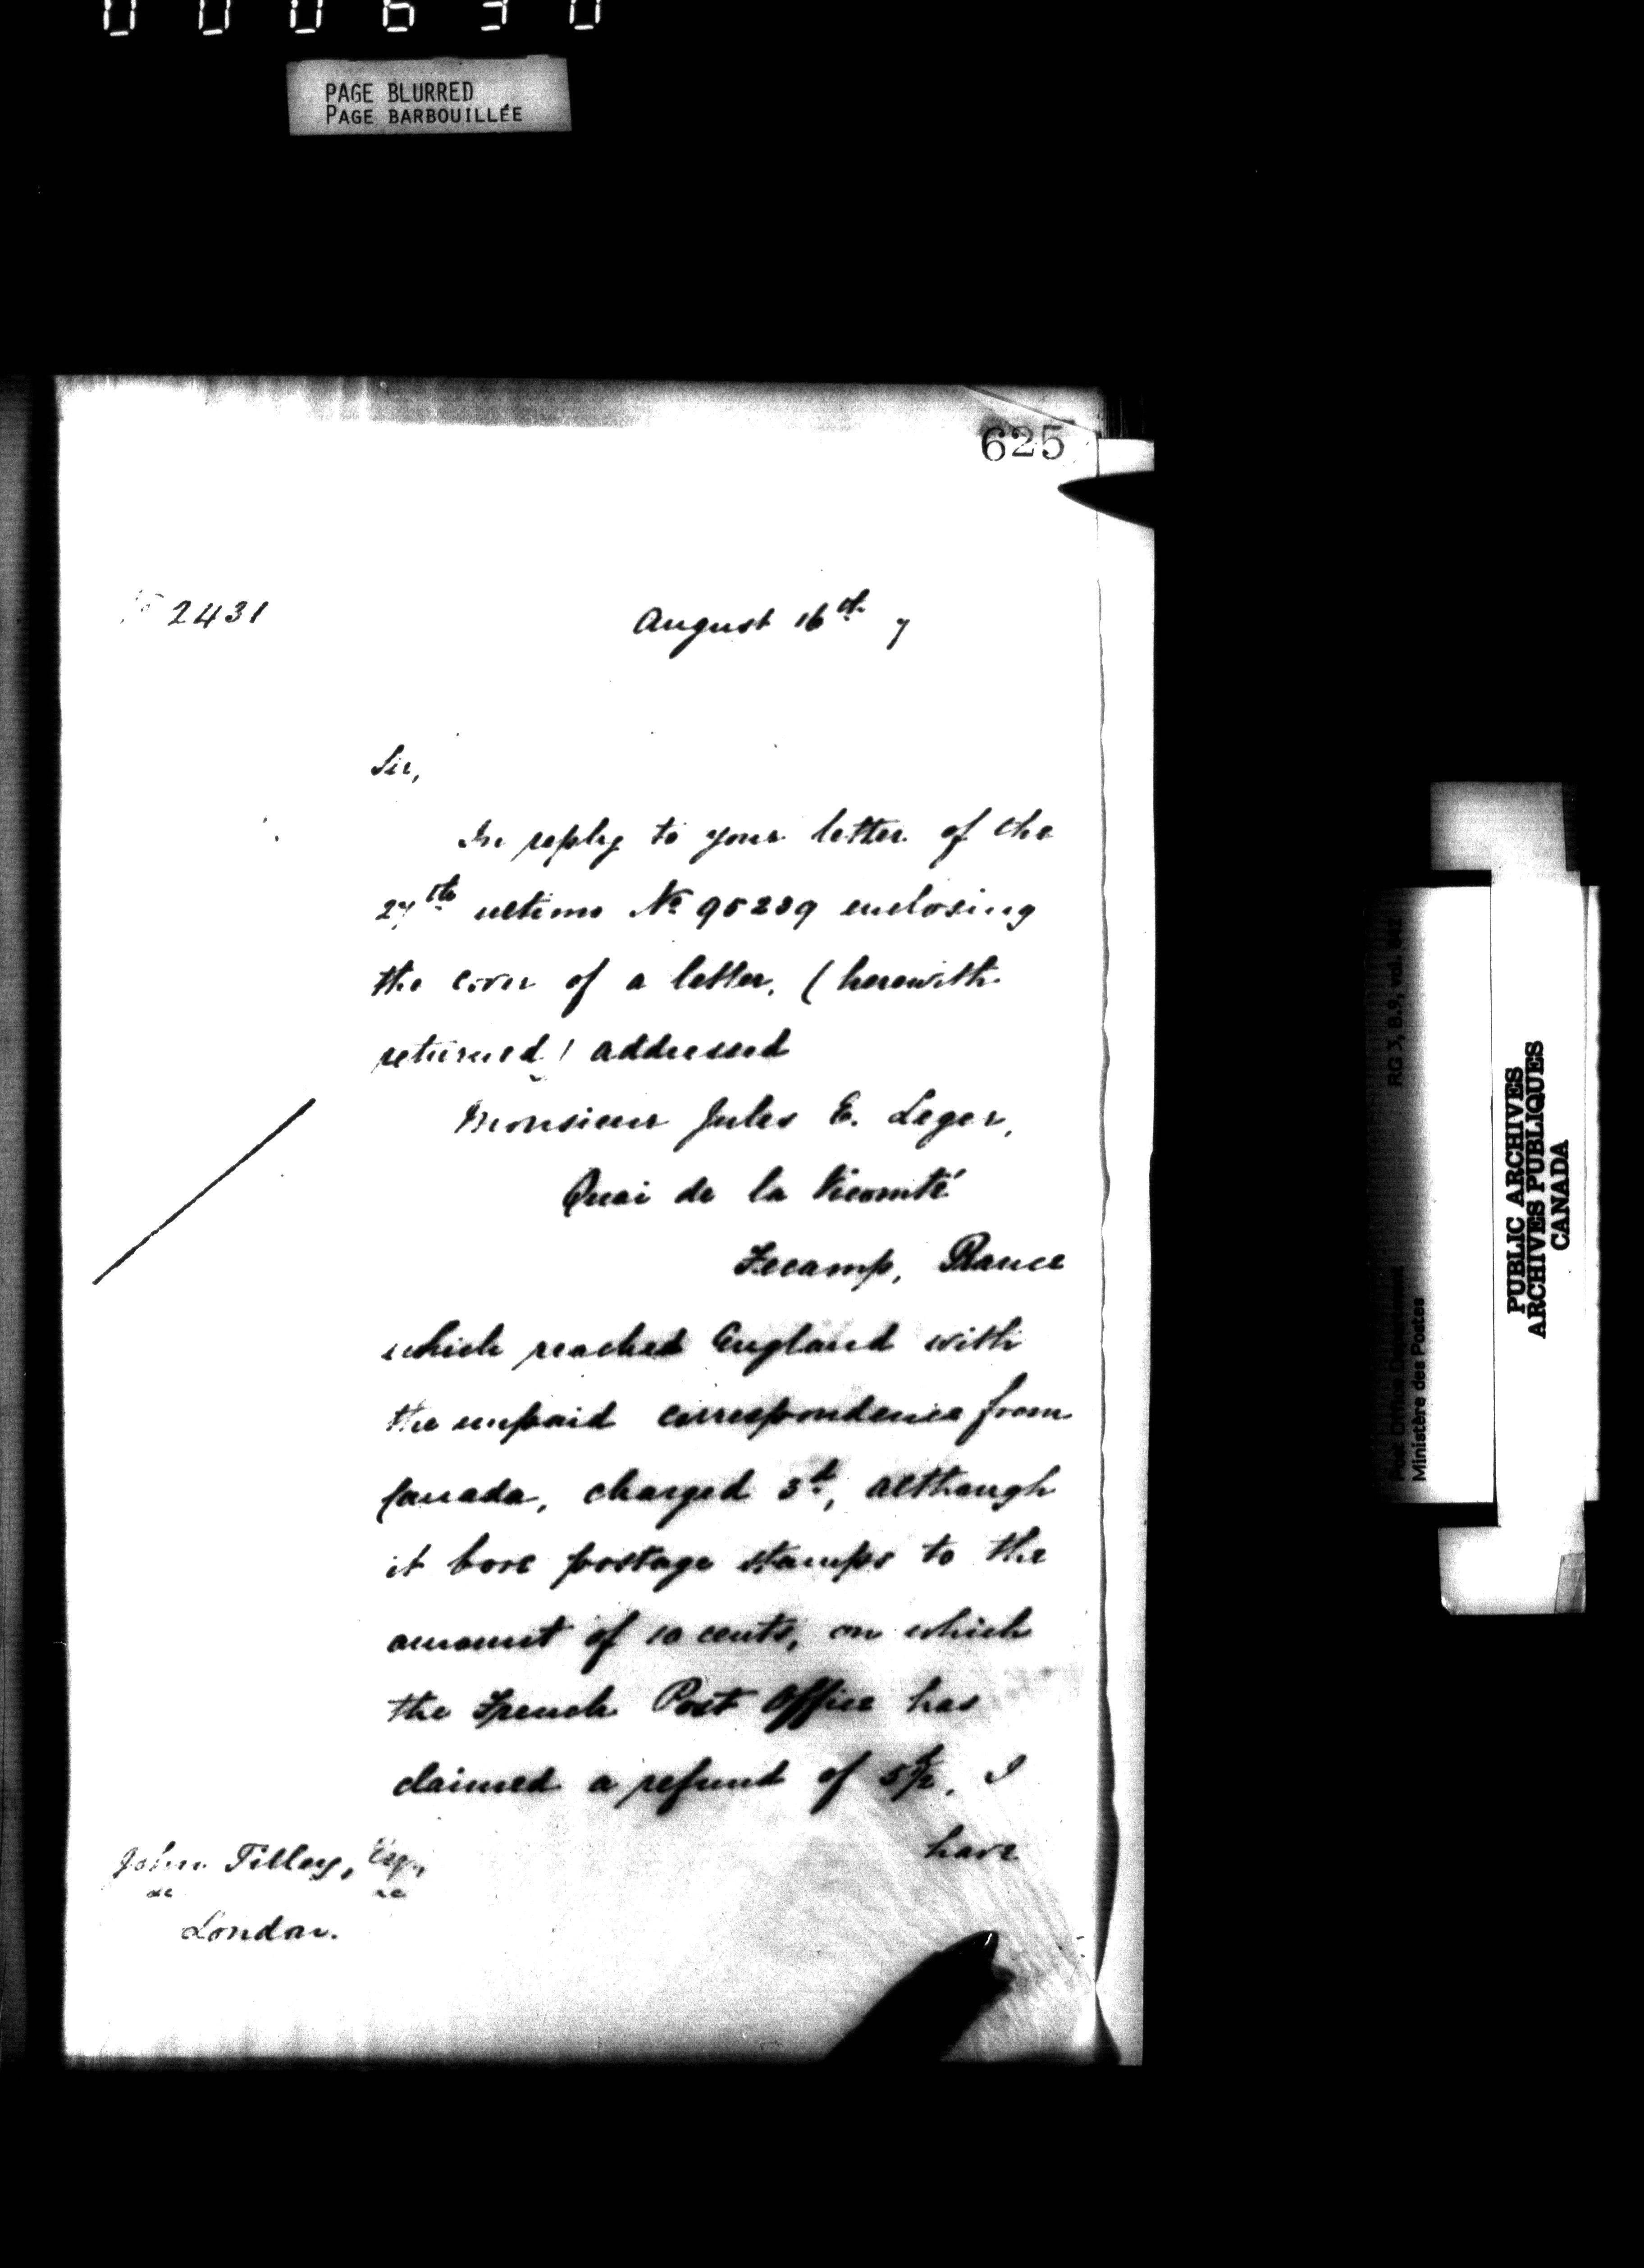 000630
PAGE BLURRED
PAGE BARBOUILLÉE
625
No 2431
August 16th 7
Sir,
In reply to your letter of the
27th ultimo No 95239 enclosing
the cover of a letter, (herewith
returned) addressed
Monsieur Jules E. Leger,
Quai de la Vicomté
Fecamp, France
which reached England with
the unpaid correspondence from
Canada, charged 3d, although
it bore postage stamps to the
amount of 10 cents, on which
the French Post Office has
claimed a refund of 5½d, I
have
John Tilley, Esq,
&c &c
London.
RG 3, B.9, vol. 642
Post Office Department
Ministère des Postes
PUBLIC ARCHIVES
ARCHIVES PUBLIQUES
CANADA